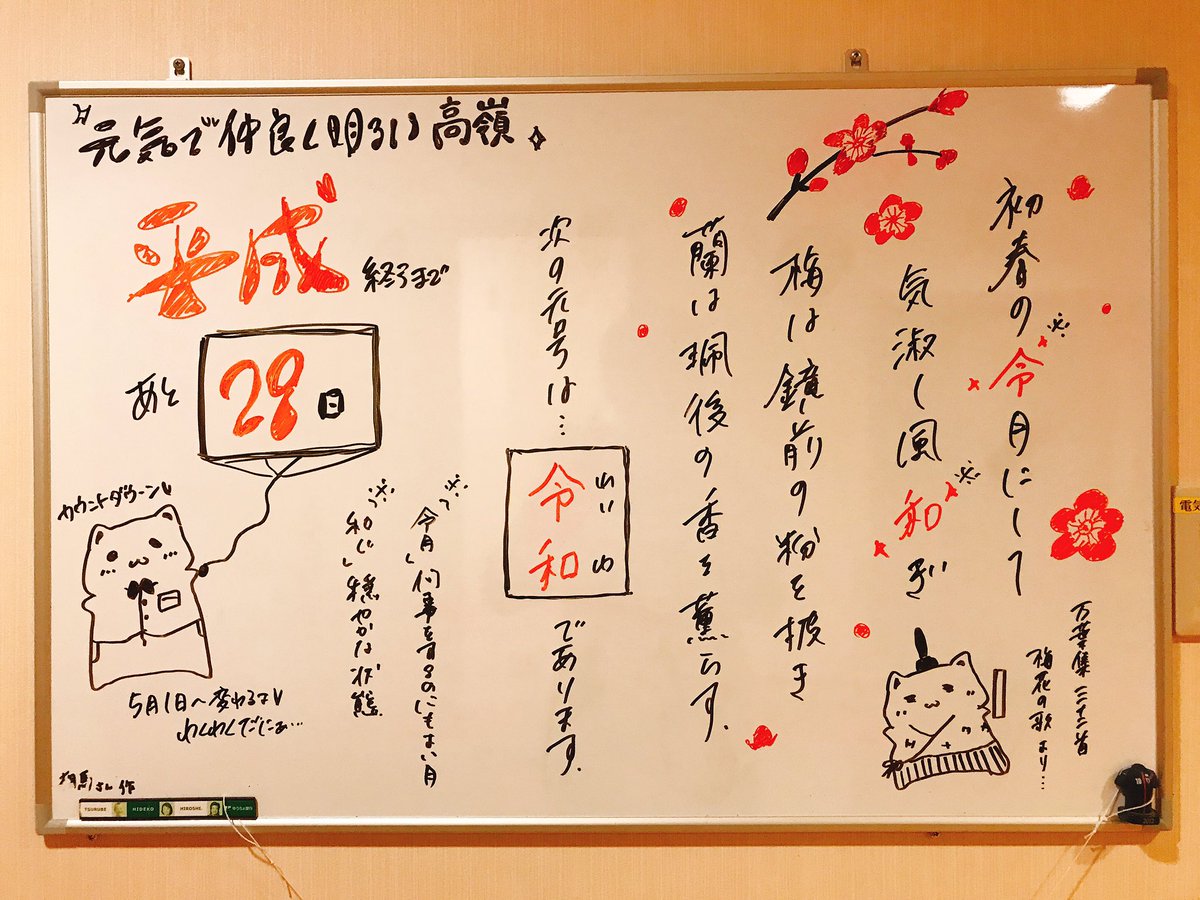 元気で仲良く明るい高嶺
初春の令※月にして
気淑く風和※ぎ
梅は鏡前の粉を披き
蘭は珮後の香を薫らす。
万葉集 三十二首
梅花の歌より…
次の元号は…
令和
れいわ
であります。
※「令月」何事をするのにもよい月
※「和し」穏やかな状態
平成
終了まで
あと
28日
カウントダウーン
5月1日〜変わるよ
わくわくだにゃぁ…
さん作
TSURUBE
HIDEKO
HIROSHI
電気